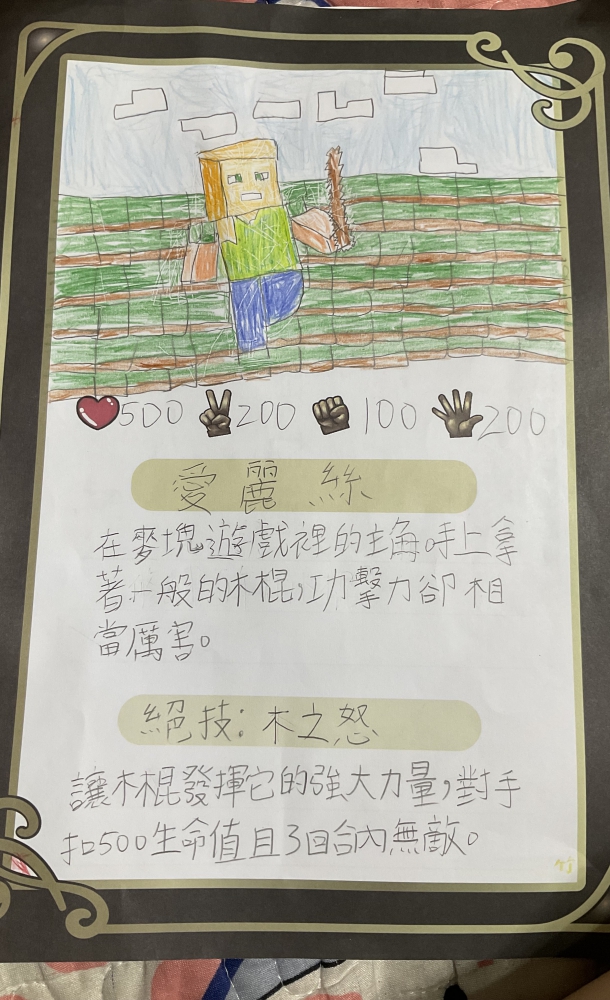 500 200 100 200
愛麗絲
在麥塊遊戲裡的主角。手上拿
著一般的木棍,功擊力卻相
當厲害。
絕技:木之怒
讓木棍發揮它的強大力量,對手
扣500生命值且3回合內無敵。
竹